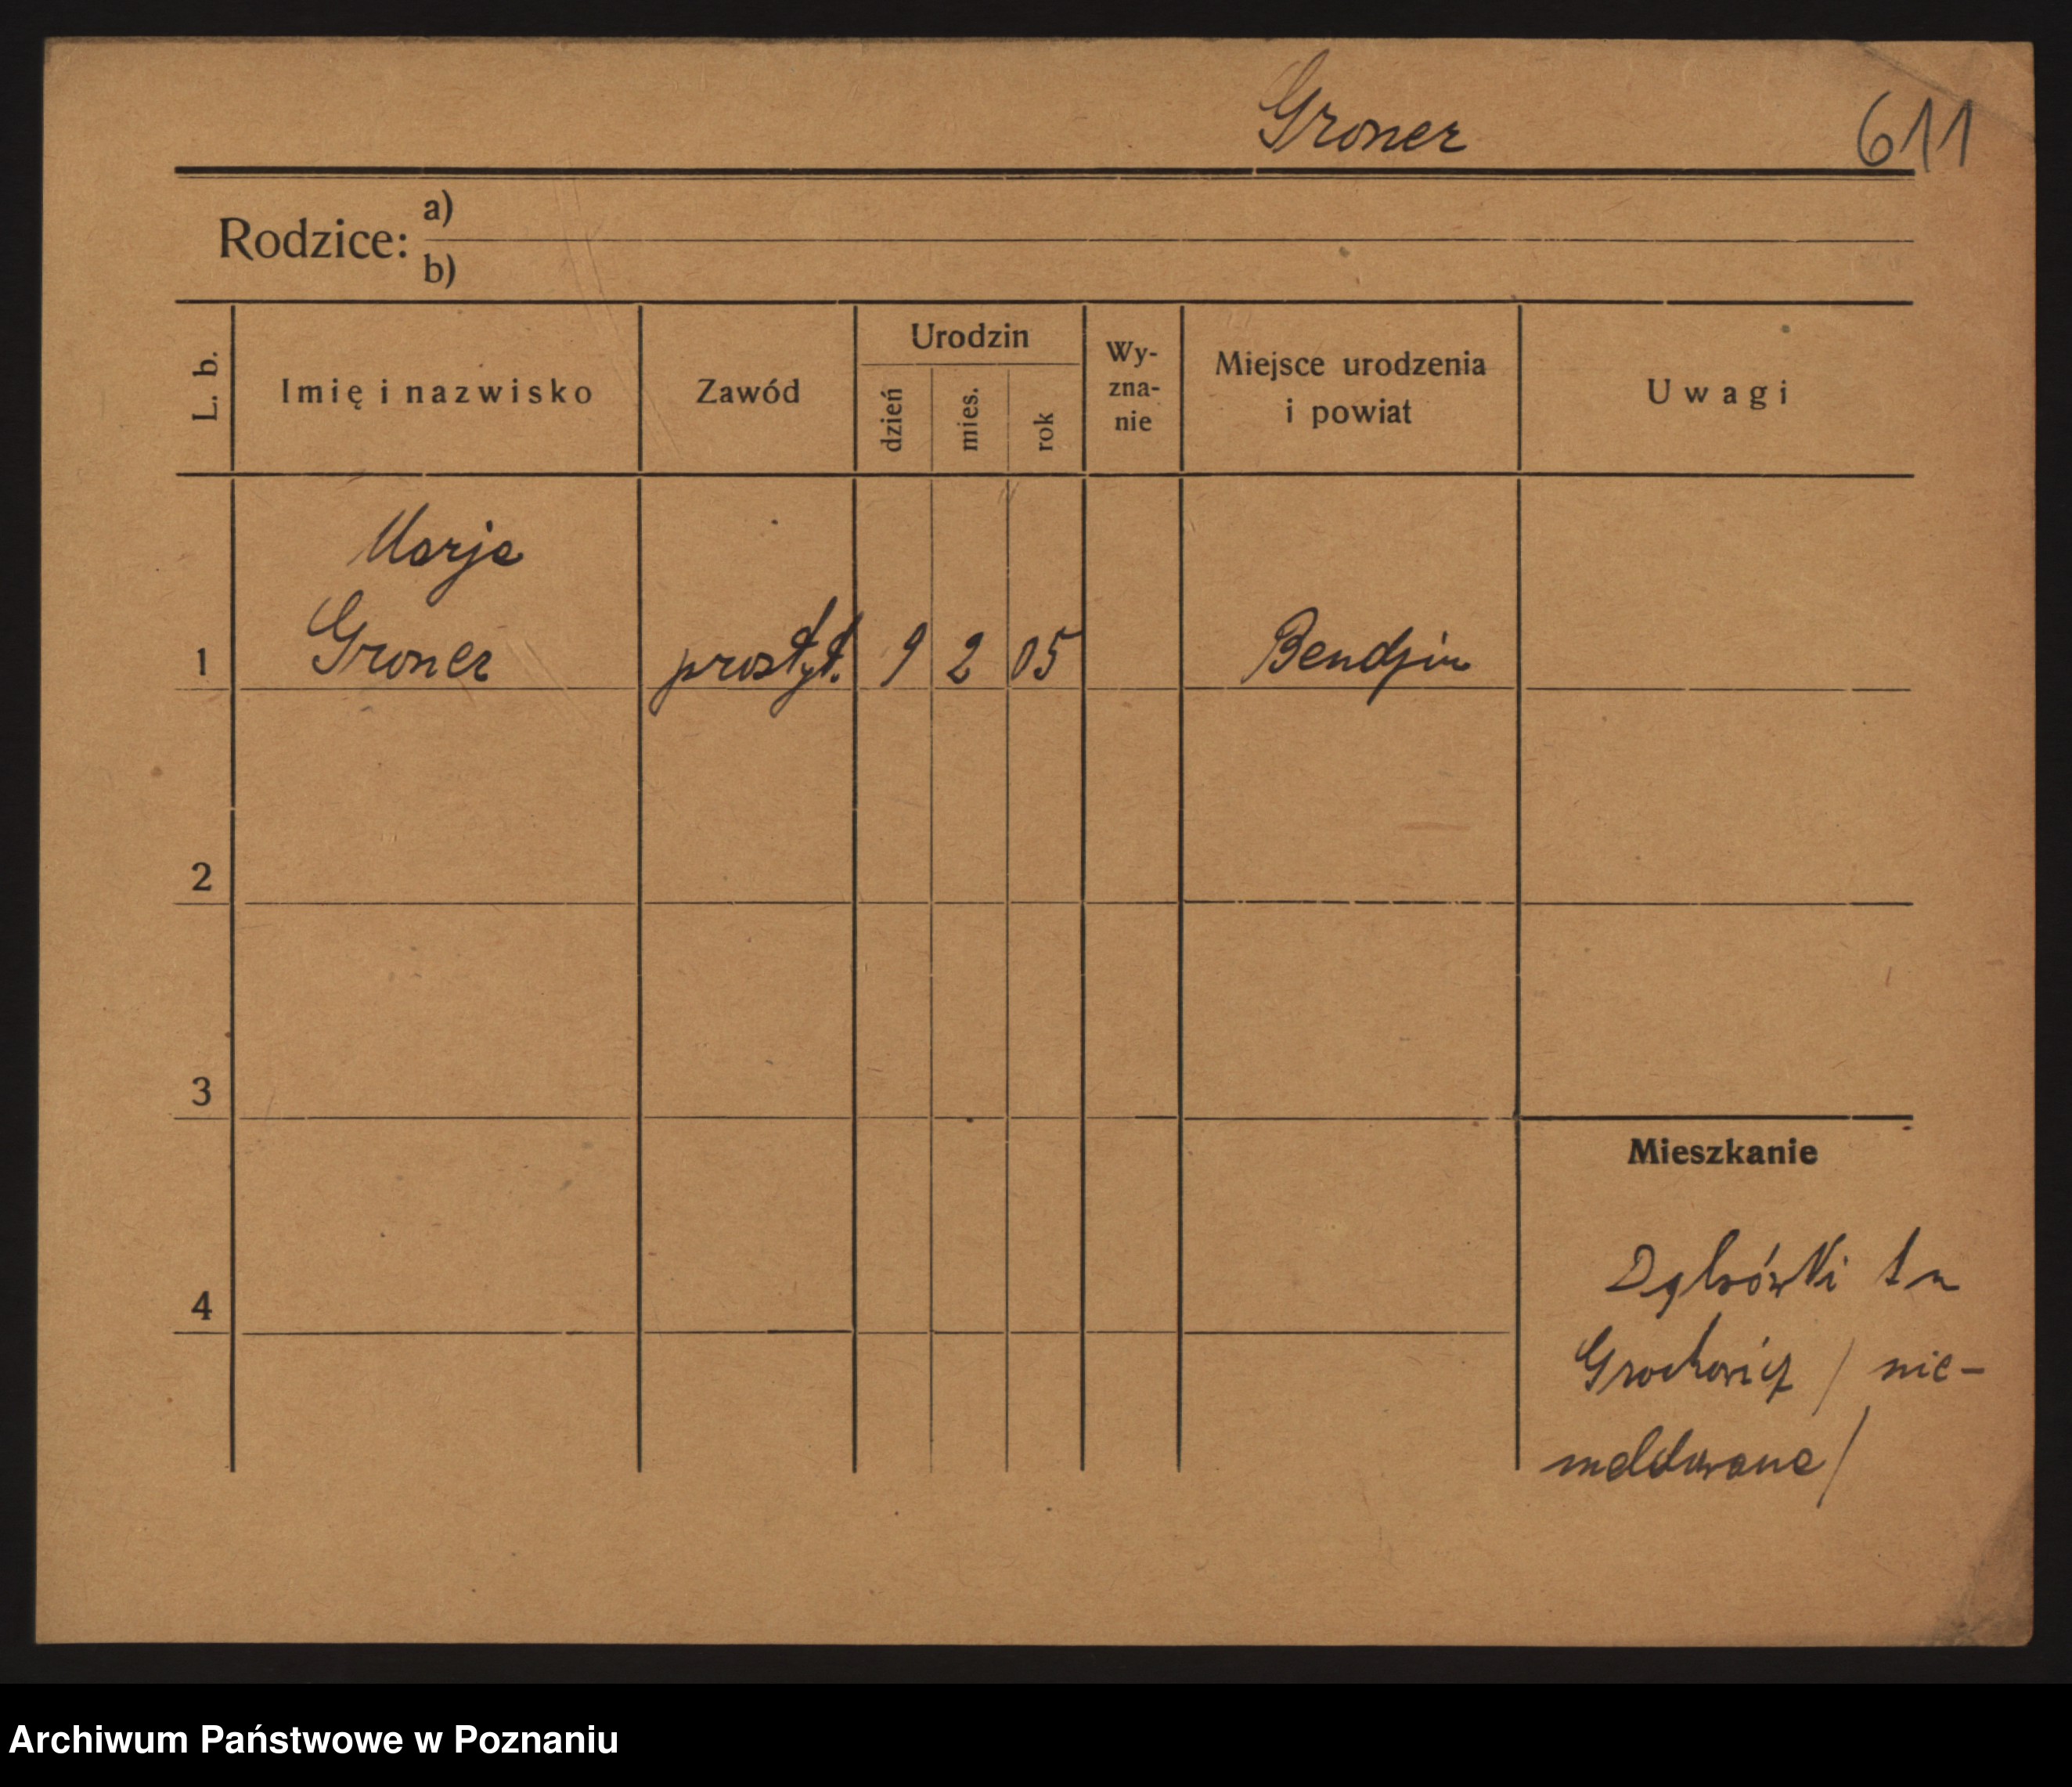 Groner 611
Rodzice: a)
b)
L. b.
Imię i nazwisko
Zawód
Urodzin
dzień
mies.
rok
Wy-
zna-
nie
Miejsce urodzenia
i powiat
Uwagi
Marja
1 Groner prostyt. 9 2 05 Bendzin
2
3
4
Mieszkanie
Dąbrówki
Grochowicz / nie-
meldowana /
Archiwum Państwowe w Poznaniu